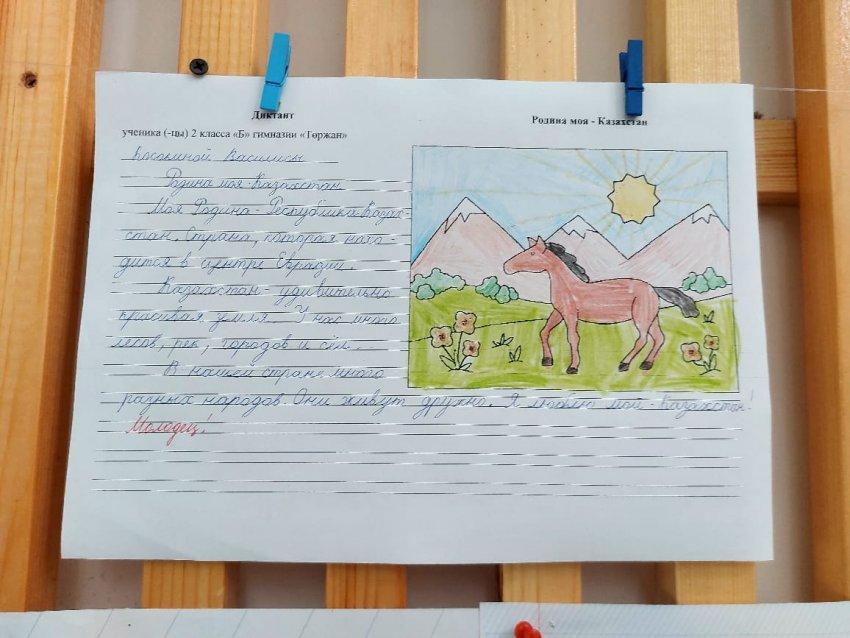 Диктант
Родина моя - Казахстан
ученика (-цы) 2 класса «Б» гимназии «Төржан»
Василисы
Родина моя - Казахстан
Моя Родина - Республика Казах-
стан. Страна, которая нахо-
дится в центре Евразии.
Казахстан - удивительно
красивая земля. У нас много
лесов, рек, городов и сёл.
В нашей стране много
разных народов. Они живут дружно. Я люблю мой - Казахстан!
Молодец!